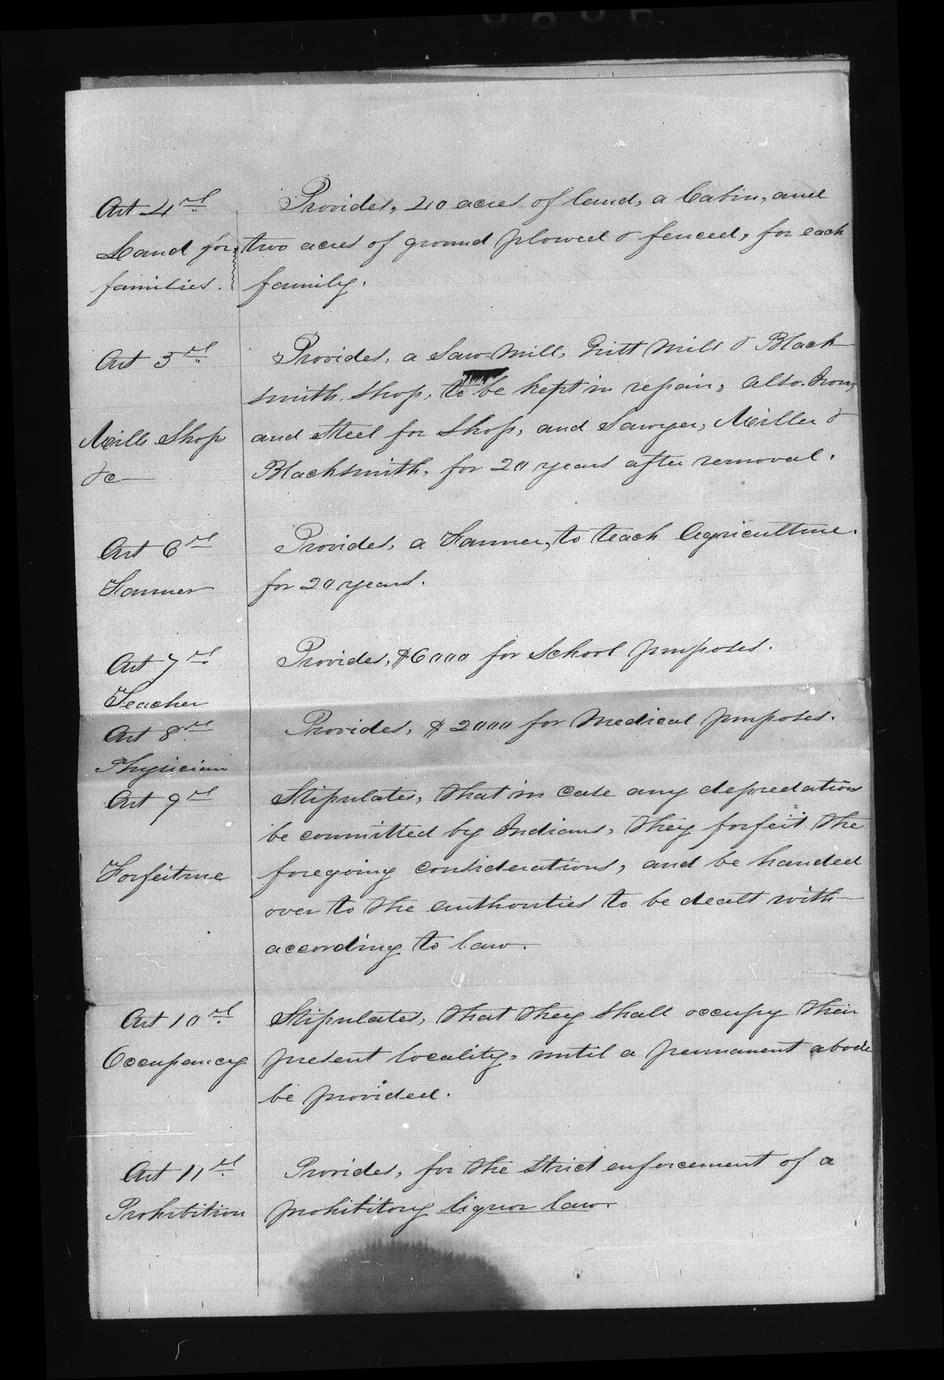 Art 4rd
Provides, 40 acres of land, a Cabin, and
Land for
two acres of ground plowed & fenced, for each
families.
family.
Art 5rd
Provides, a Saw Mill, Grist Mill & Black
smith Shop, to be kept in repair, also Iron,
Mills Shop
and Steel for Shop, and Sawyer, Miller &
&c
Blacksmith, for 20 years after removal.
Art 6rd
Provides, a Farmer, to teach Agriculture.
Farmer
for 20 years.
Art 7rd
Provides, $6000 for School purposes.
Teacher
Art 8rd
Provides, $2000 for Medical purposes.
Physician
Art 9rd
Stipulates, that in case any depredation
be committed by Indians, they forfeit the
Forfeiture
foregoing considerations, and be handed
over to the authorities to be dealt with
according to law.
Art 10rd
Stipulates, that they shall occupy their
Occupancy
present locality, until a permanent abode
be provided.
Art 11rd
Provides, for the strict enforcement of a
Prohibition
prohibitory liquor law.